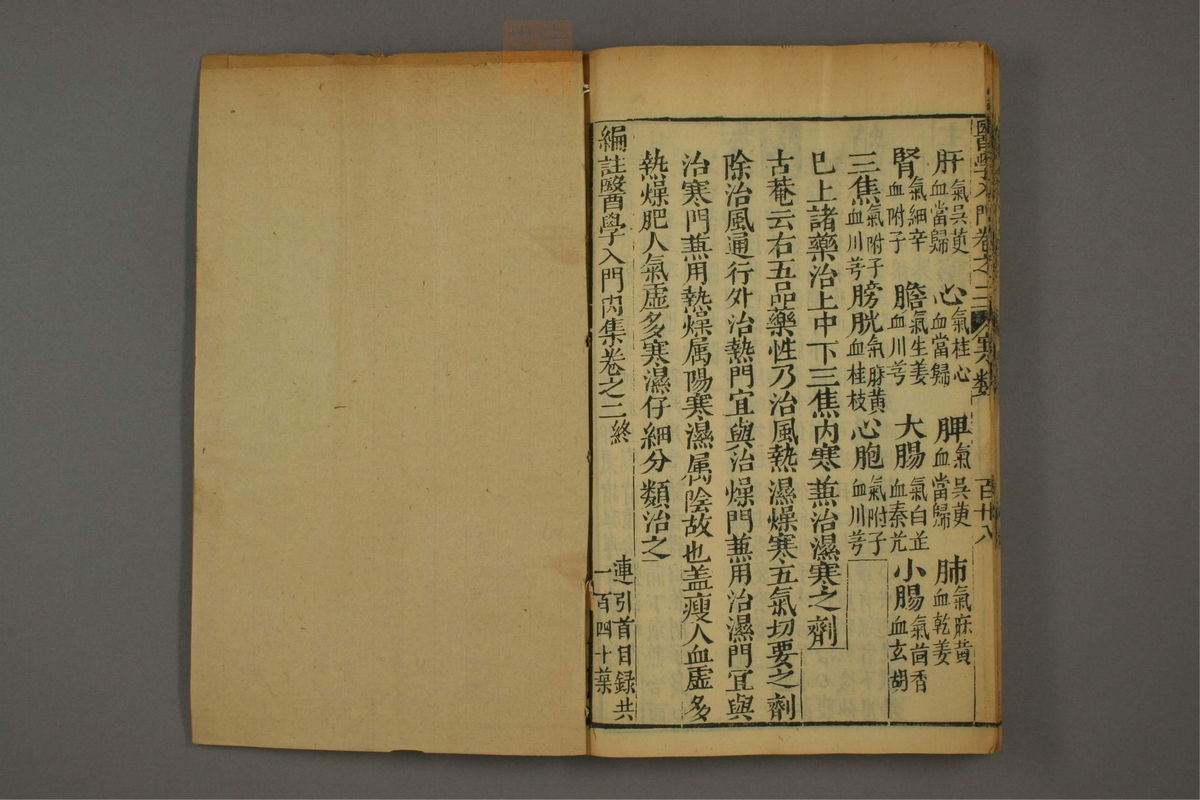 醫學入門卷之二 寒類 百廿八
肝氣吳萸血當歸 心氣桂心血當歸 脾氣吳萸血當歸 肺氣麻黃血乾姜
腎氣細辛血附子 膽氣生姜血川芎 大腸氣白芷血秦艽 小腸氣茴香血玄胡
三焦氣附子血川芎 膀胱氣麻黃血桂枝 心胞氣附子血川芎
已上諸藥治上中下三焦內寒兼治濕寒之劑
古菴云右五品藥性乃治風熱濕燥寒五氣切要之劑
除治風通行外治熱門宜與治燥門兼用治濕門宜與
治寒門兼用熱燥属陽寒濕属陰故也盖瘦人血虛多
熱燥肥人氣虛多寒濕仔細分類治之
編註醫學入門內集卷之二終 連引首目録共一百四十葉